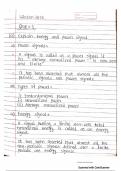 Winter-2018
Que:- 1
(a) Explain energy and power signal
⇒ Power signals:-
→ A signal is called as a power signal if
its "average normalized power" is non-zero
and finite.
→ It has been observed that almost all the
periodic signals are power signals.
⇒ Types of power:-
1) Instantaneous power
2) Normalized power
3) Average normalized power.
⇒ Energy signals:-
→ A signal having a finite non-zero total
normalized energy is called as an energy
signal.
→ It has been observed that almost all the
non-periodic signals defined over finite
periods are energy signals.
Scanned with CamScanner